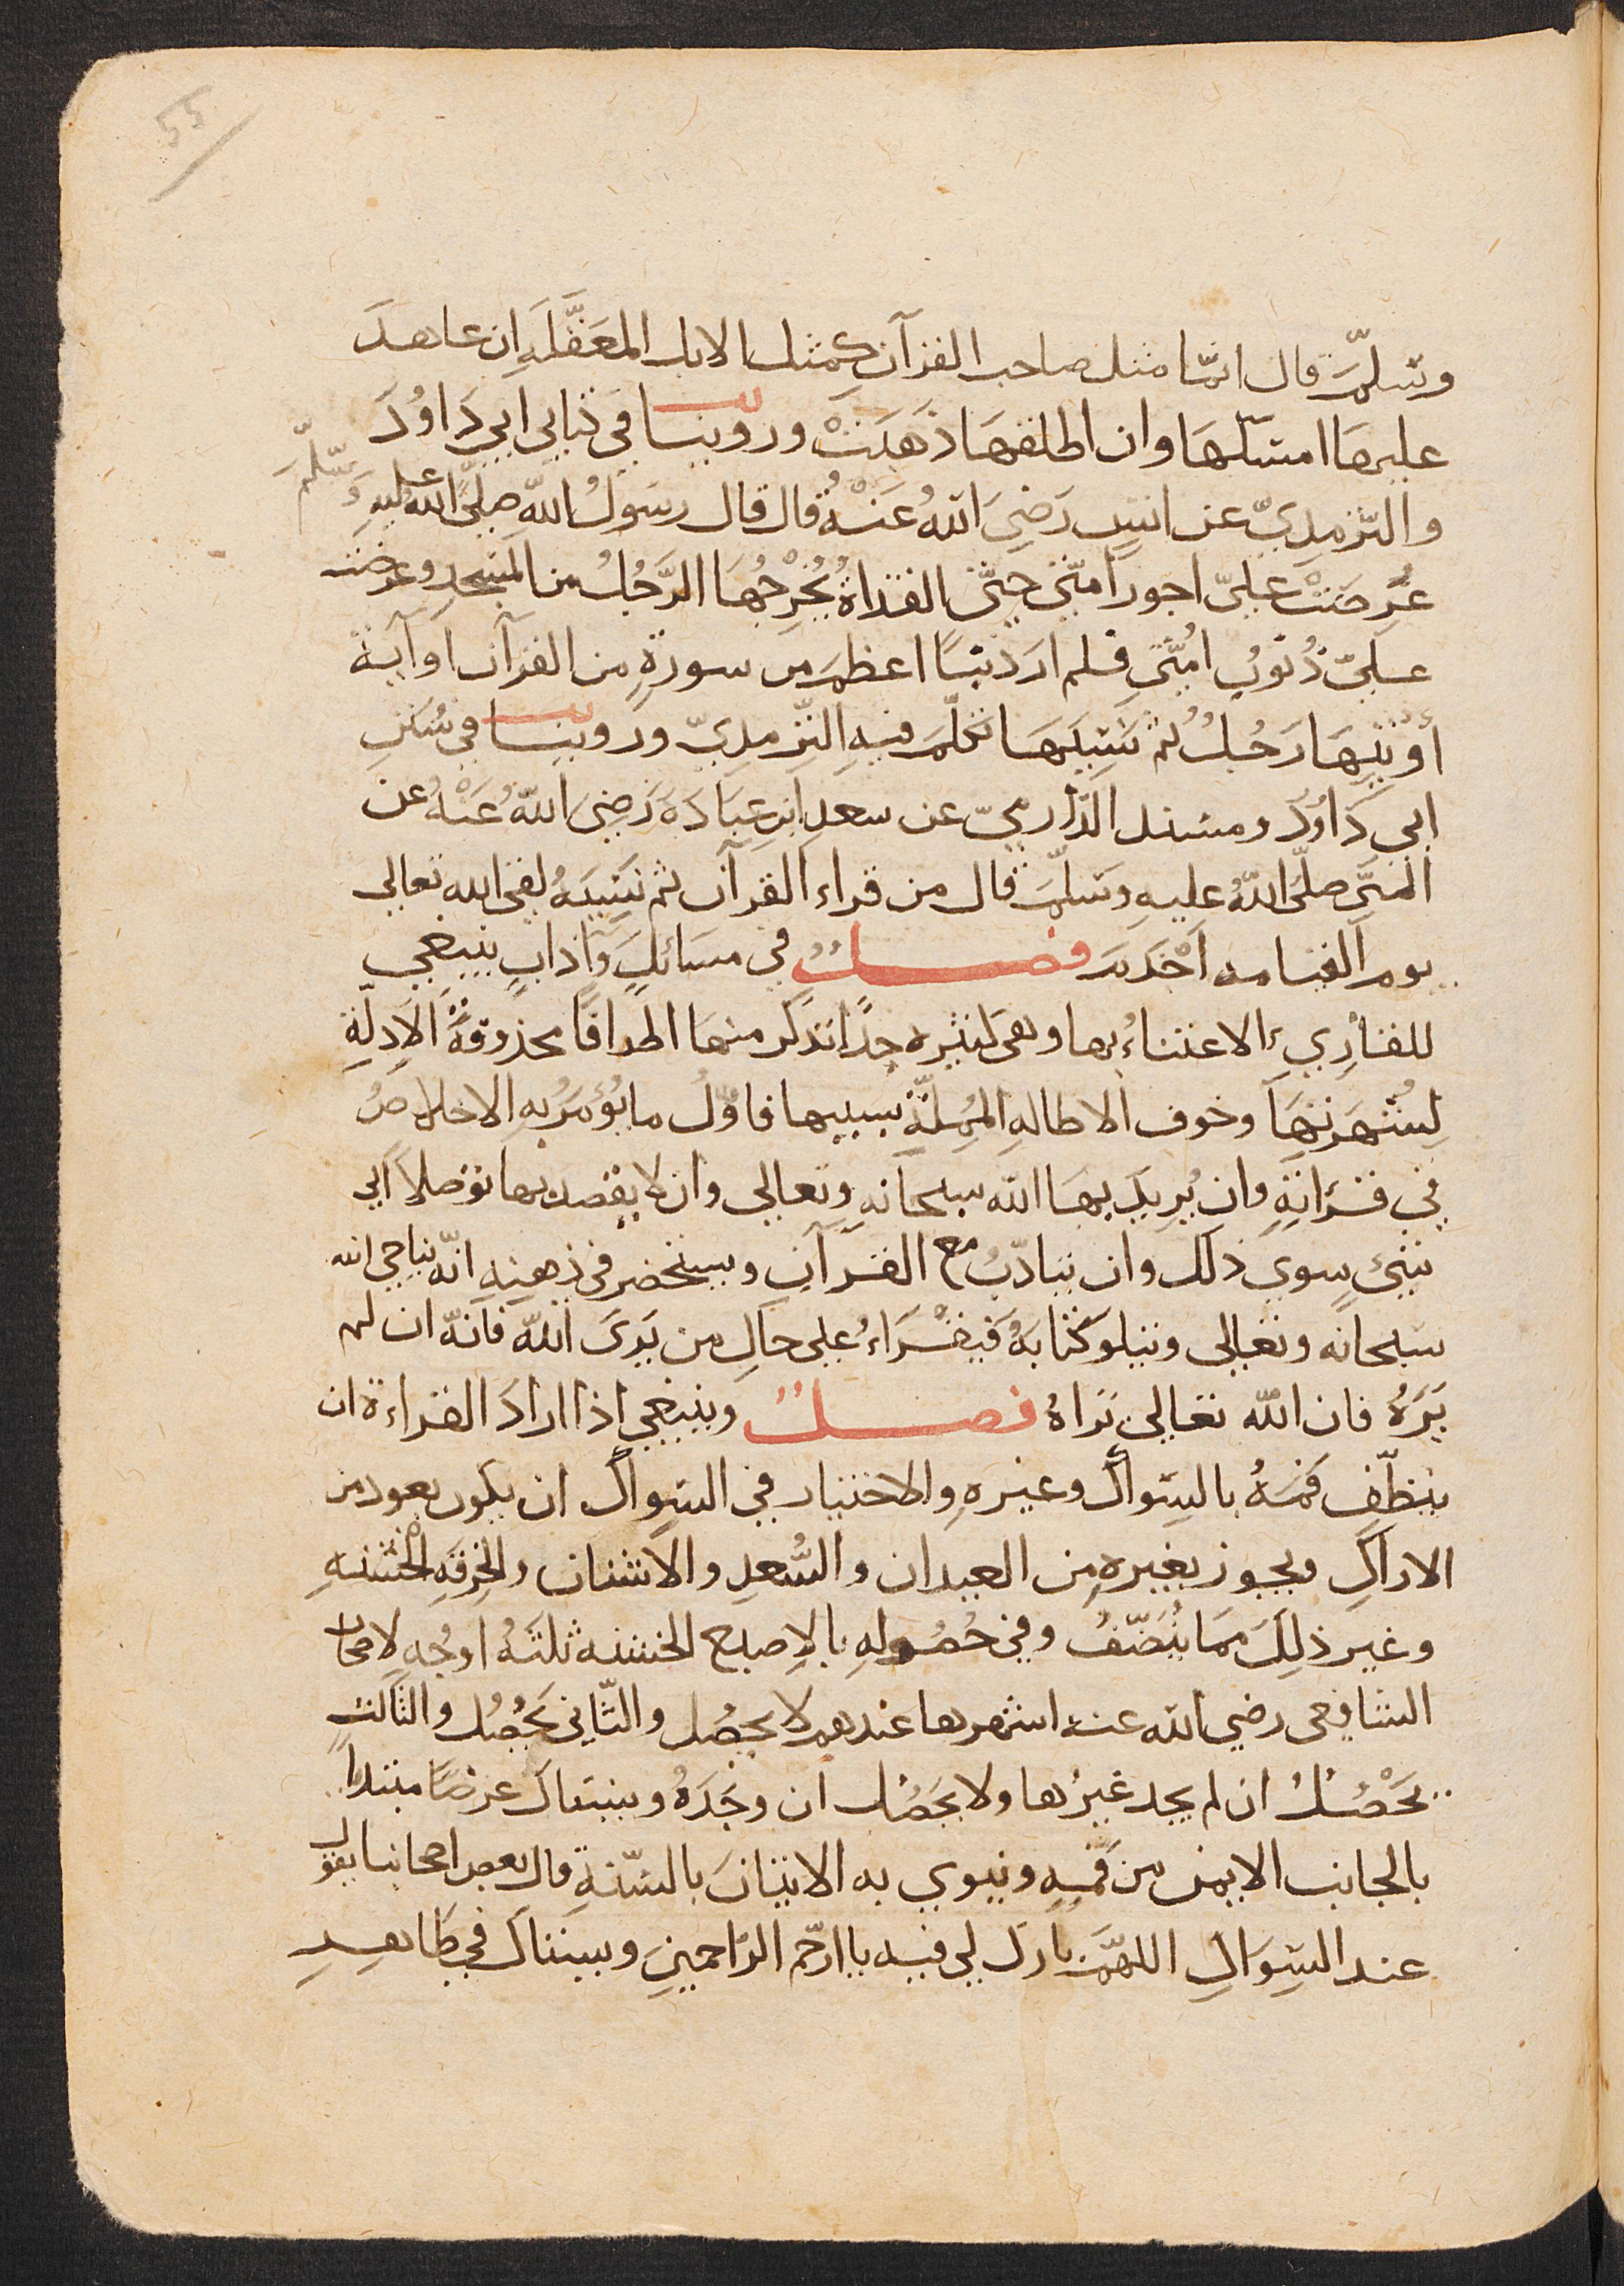 55
وسَلَّمَ قال انّما مثل صاحب القرآن كمثل الابل المعَقَّلَهِ ان عاهدَ
عليها امسكهَا وان اطلقهَا ذَهَبَتْ وروينا في كتابي ابي دَاوُدَ
والتّرمِذيّ عن انسٍ رَضِيَ اللهُ عَنْهُ قال قال رسَولُ اللهِ صلّى اللهُ عليْهِ وَسَّلَمَ
عُرِضَتْ عليّ اجور امّتى حتّى القذاةُ يُخْرِجُهَا الرَّجُلُ من المسْجدِ وعُرضتْ
عليّ ذُنُوبُ امُّتي فلم ارَ ذنبًا اعظمَ من سورةٍ من القرآن او آيةٍ
أُوْتيهَا رَجُلٌ ثم نَسِيَهَا تكلّمَ فيهِ التّرمِذيّ وروينا في سُنَنِ
ابي دَاوُدَ ومسْند الدّارميّ عن سعدِ ابنِ عبَادَةَ رَضِىَ اللهُ عَنْهُ عن
النبّيَ صلّى اللهُ عليهِ وسَلّمَ قال من قراء القرآن ثم نَسِيَهُ لقى الله تعالى
يوم القيامه اَجْذَمَ فصـــلٌ في مسَائلَ وَآدابٍ ينبغي
للقارِيءِ الاعتناءُ بها وهي كثيره جدًا نذكر منهَا اطرافًا محذوفَةَ الادلّةِ
لِشُهرتهَا وخوف الاطالهِ المُمِلّةِ بسَببها فاوّلُ ما يُؤمَرُ بهِ الاخلاصُ
في قرَاتهِ وان يُريدَ بهَا الله سبحانه وتعالي وان لا يقصد بها توصلاً الى
شيئ سِوي ذلك وان يتادّبُ مع القرآن ويستحضر في ذهنهِ انّه يناجي الله
سبحانه وتعالى ويتلو كتابَهُ فيَقْرَاءُ على حالِ من يَرىَ اللهَ فانّه ان لم
يَرَهُ فان الله تعالى يَراهُ فصـــلٌ وينبغي اذا ارادَ القراءة ان
ينظّفَ فمَهُ بالسّواكِ وغيرهِ والاختيار في السّواكِ ان يكون بعود من
الاراكِ ويجوز بغيره من العيدان والسُّعدِ والاشنان والخِرقهِ الخشنهِ
وغيرَ ذلِكَ ممَا يُنَظّفُ وفي حُصُولهِ بالاِصبع الخشنه ثلثَهُ اوجُهٍ لاصحاب
الشافِعى رضي الله عنه اشهرها عندهم لا يحصُل والثّاني يَحْصُل والثالث
يَحْصُلُ ان لم يجد غيرُها ولا يحَصُل ان وجَدَهُ ويستاك عرضًا مبتدأً
بالجانب الايمن من فَمهِ وينوي به الاتيَانَ بالسّنةِ قال بعض اصحابنا يقول
عند السّوَاكِ اللهمَّ بارك لي فيه ياارحَم الرّاحمينِ ويستاكَ في ظاهِرِ